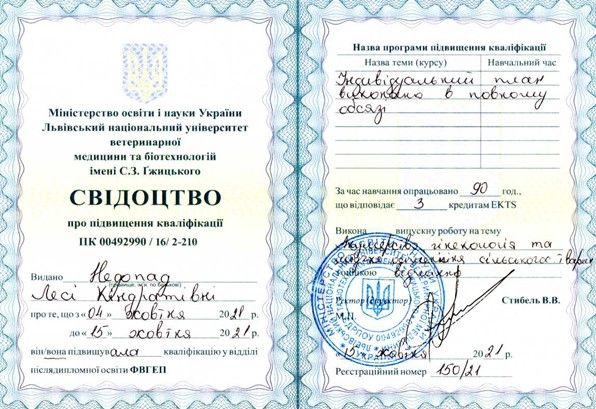 Міністерство освіти і науки України
Львівський національний університет
ветеринарної
медицини та біотехнологій
імені С.З. Ґжицького
СВІДОЦТВО
про підвищення кваліфікації
ПК 00492990 / 16/ 2-210
Видано Недопад
(прізвище, ім'я, по батькові)
Лесі Кіндратівні
про те, що з «04» жовтня 2021р.
до «15» жовтня 2021р.
він/вона підвищувала кваліфікацію у відділі
післядипломної освіти ФВГЕП
Назва програми підвищення кваліфікації
Назва теми (курсу) Навчальний час
Індивідуальний план
виконано в повному
обсязі
За час навчання опрацьовано 90 год.,
що відповідає 3 кредитам EKTS
Викона випускну роботу на тему
Акушерство гінекологія та
сільського
з оцінкою відмінно
Ректор (директор) Стибель В.В.
М.П.
«15» жовтня 2021р.
Реєстраційний номер 150/21